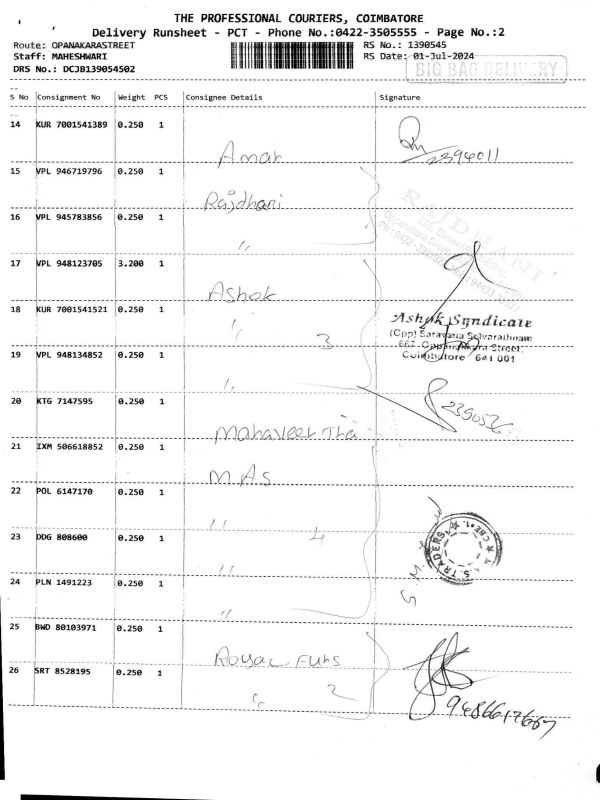 THE PROFESSIONAL COURIERS, COIMBATORE
Delivery Runsheet - PCT - Phone No.:0422-3505555 - Page No.:2
Route: OPANAKARASTREET RS No.: 1390545
Staff: MAHESHWARI RS Date: 01-Jul-2024
DRS No.: DCJB139054502 BIG BAG DELIVERY
S No Consignment No Weight PCS Consignee Details Signature
14 KUR 7001541389 0.250 1
Amar 2394011
15 VPL 946719796 0.250 1
Rajdhani
RAJDHANI
16 VPL 945783856 0.250 1
"
17 VPL 948123705 3.200 1
Ashok
18 KUR 7001541521 0.250 1
Ashok Syndicate
" 3
(Opp) Saravana Selvarathnam
662, Oppanakara Street,
19 VPL 948134852 0.250 1
Coimbatore 641 001
"
20 KTG 7147595 0.250 1
2390536
Mahaveer
21 IXM 506618852 0.250 1
M.A.S
22 POL 6147170 0.250 1
"
23 DDG 808600 0.250 1
4
S. TRADERS
"
24 PLN 1491223 0.250 1
"
25 BWD 80103971 0.250 1
Royal Funs
26 SRT 8528195 0.250 1
" 2